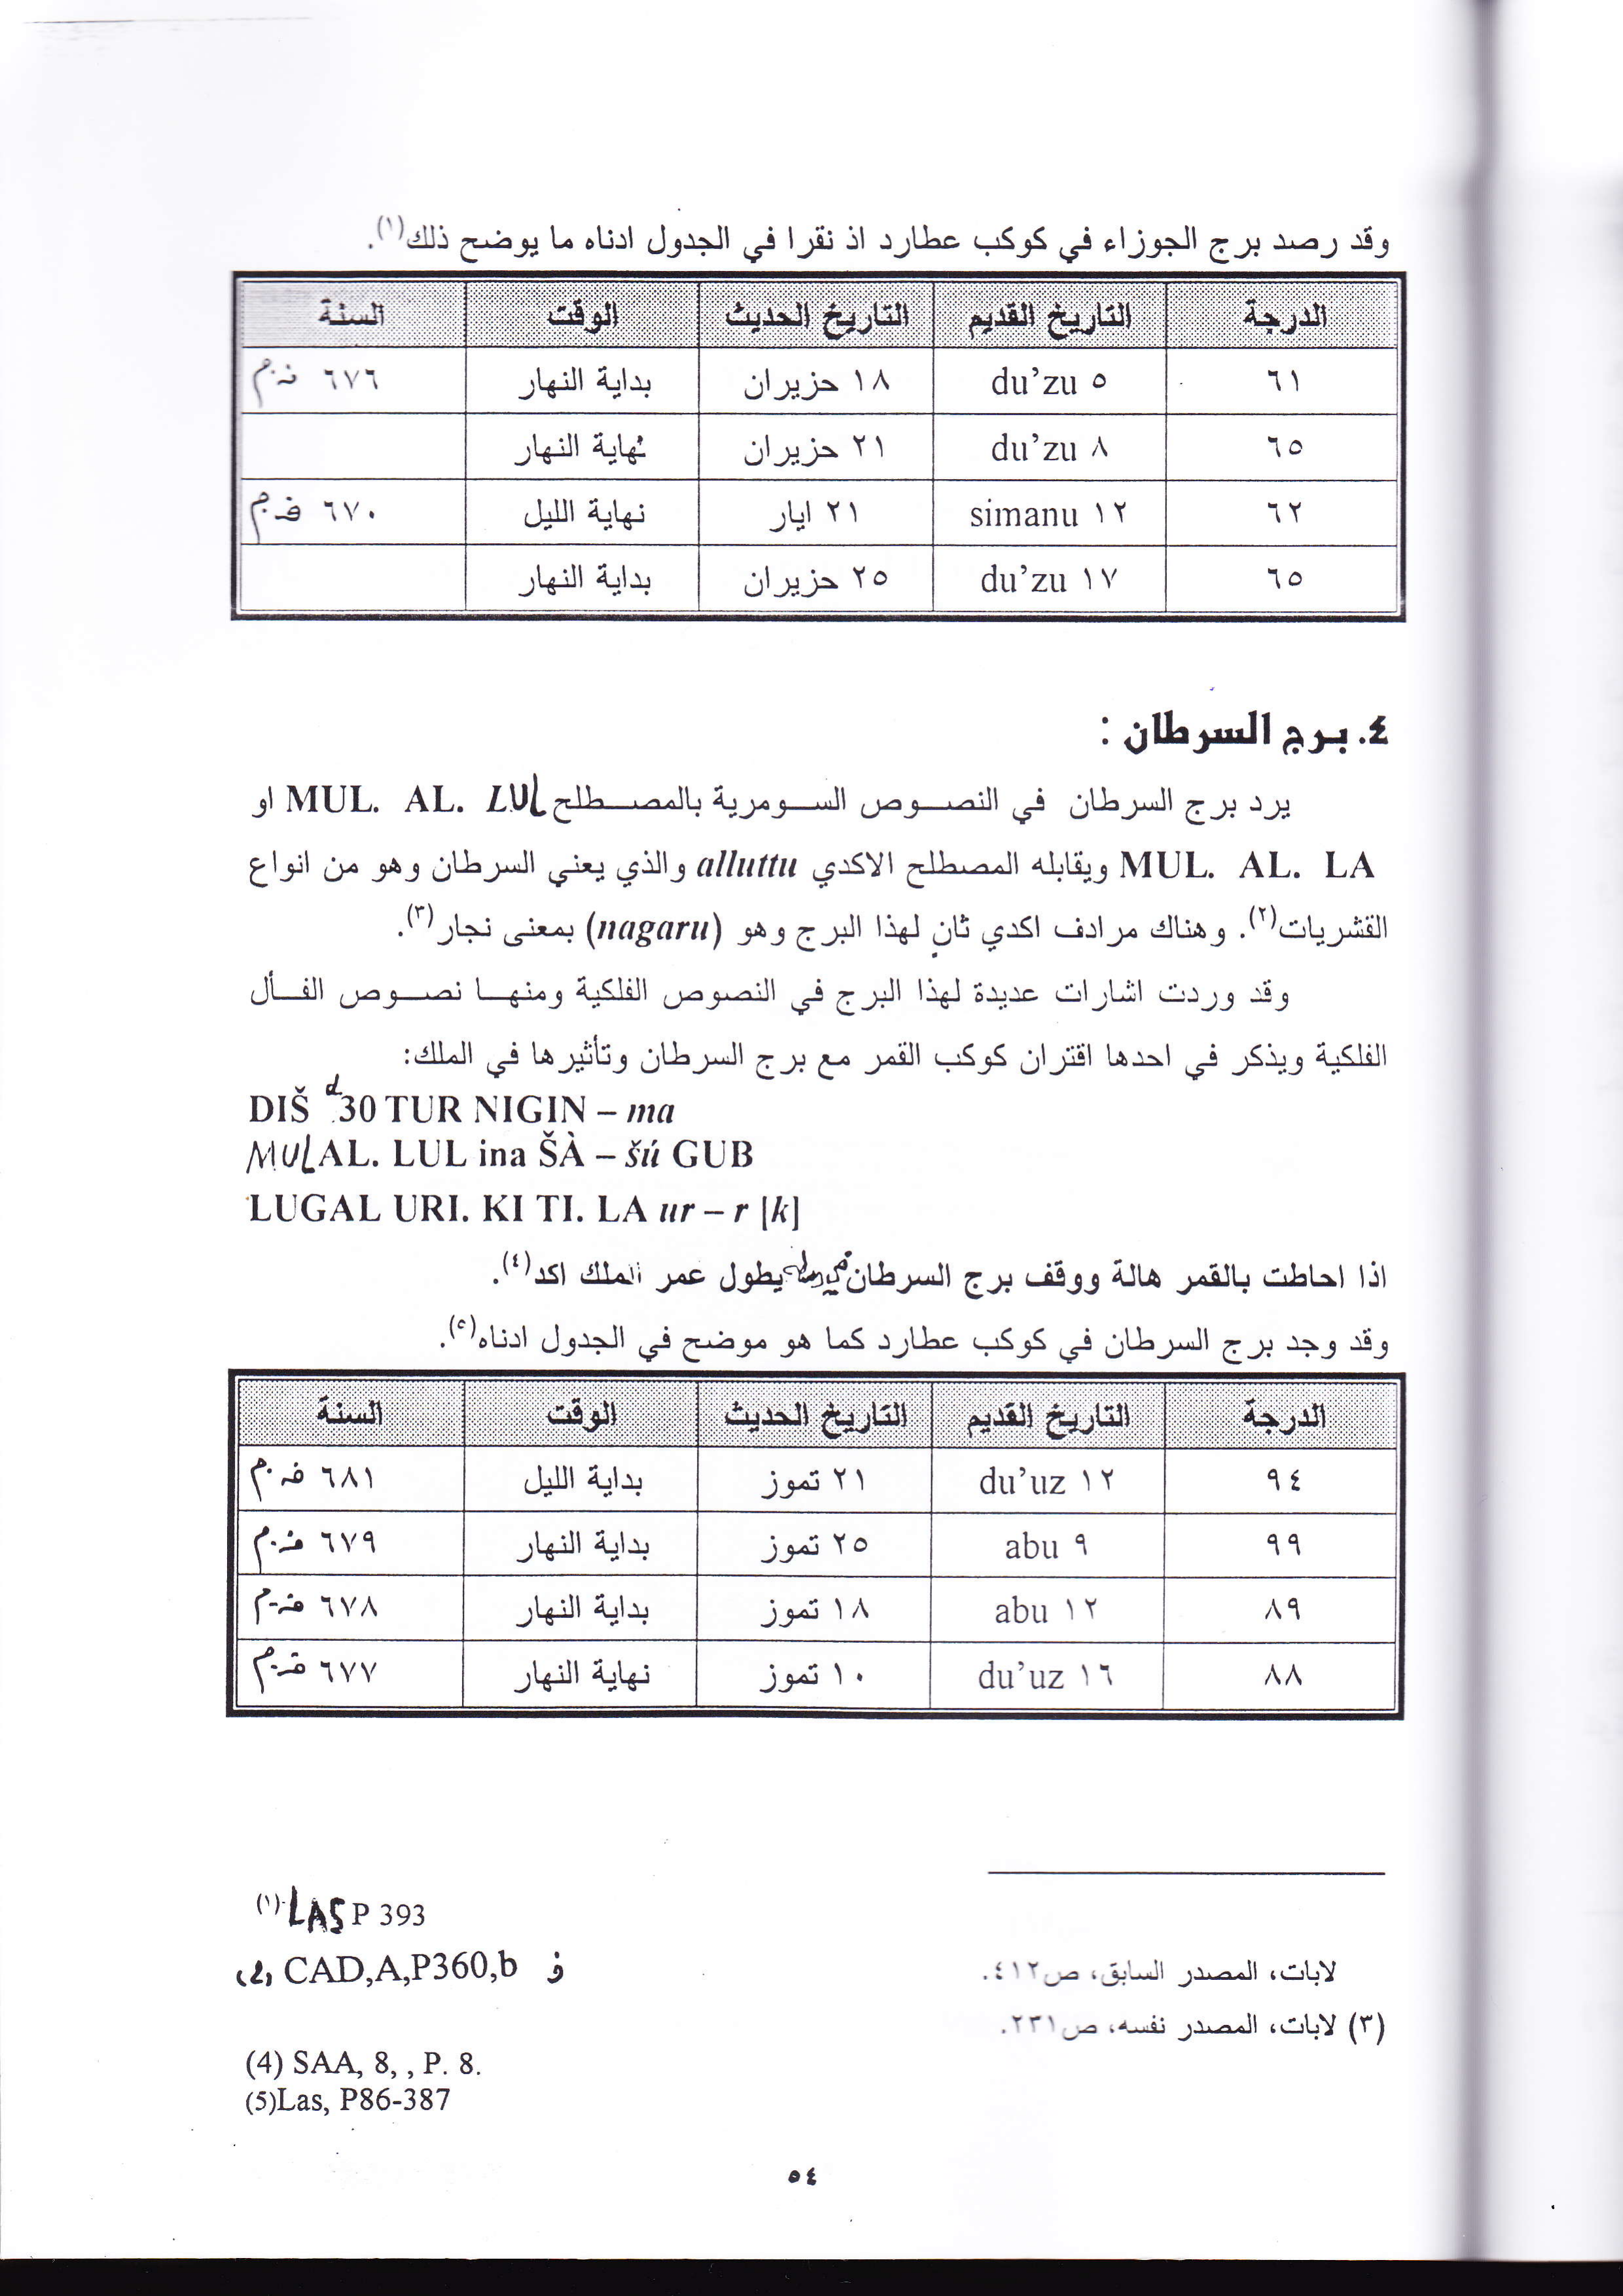 وقد رصد برج الجوزاء في كوكب عطارد اذ نقرا في الجدول ادناه ما يوضح ذلك(١).
الدرجة التاريخ القديم التاريخ الحديث الوقت السنة
٦١ ٥ du’zu ١٨ حزيران بداية النهار ٦٧٦ ق.م
٦٥ ٨ du’zu ٢١ حزيران نهاية النهار
٦٢ ١٢ simanu ٢١ ايار نهاية الليل ٦٧٠ ق.م
٦٥ ١٧ du’zu ٢٥ حزيران بداية النهار
٤. برج السرطان :
يرد برج السرطان في النصوص السومرية بالمصطلح MUL. AL. LUL او
MUL. AL. LA ويقابله المصطلح الاكدي alluttu والذي يعني السرطان وهو من انواع
القشريات(٢). وهناك مرادف اكدي ثان لهذا البرج وهو (nagaru) بمعنى نجار(٣).
وقد وردت اشارات عديدة لهذا البرج في النصوص الفلكية ومنها نصوص الفأل
الفلكية ويذكر في احدها اقتران كوكب القمر مع برج السرطان وتأثيرها في الملك:
DIŠ d30 TUR NIGIN – ma
MUL AL. LUL ina ŠÀ – šú GUB
LUGAL URI. KI TI. LA ur – r [k]
اذا احاطت بالقمر هالة ووقف برج السرطان في وسطه يطول عمر الملك اكد(٤).
وقد وجد برج السرطان في كوكب عطارد كما هو موضح في الجدول ادناه(٥).
الدرجة التاريخ القديم التاريخ الحديث الوقت السنة
٩٤ ١٢ du’uz ٢١ تموز بداية الليل ٦٨١ ق.م
٩٩ ٩ abu ٢٥ تموز بداية النهار ٦٧٩ ق.م
٨٩ ١٢ abu ١٨ تموز بداية النهار ٦٧٨ ق.م
٨٨ ١٦ du’uz ١٠ تموز نهاية النهار ٦٧٧ ق.م
(١) LAS P 393
(2) CAD,A,P360,b و
لابات، المصدر السابق، ص٤١٢.
(٣) لابات، المصدر نفسه، ص٢٣١.
(4) SAA, 8, , P. 8.
(5)Las, P86-387
٥٤